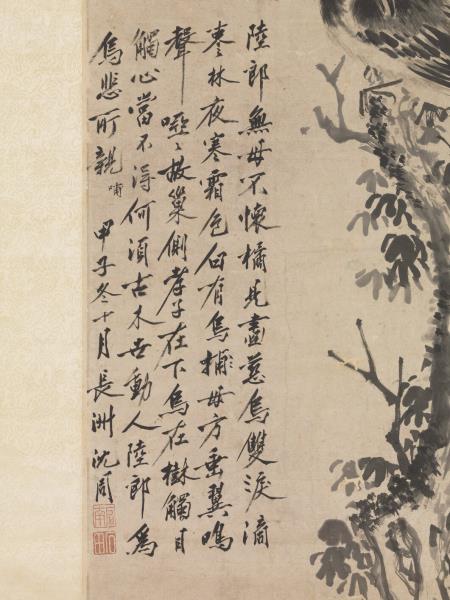 陸郎無母不懷橘見畫慈烏雙淚滴
棗林夜寒霜色白有烏母方垂翼鳴
聲啞〻故巢側孝子在下烏在樹觸目
觸心當不得何須古木動人陸郎為
烏悲所親嘯甲子冬十月長洲沈周
啟南